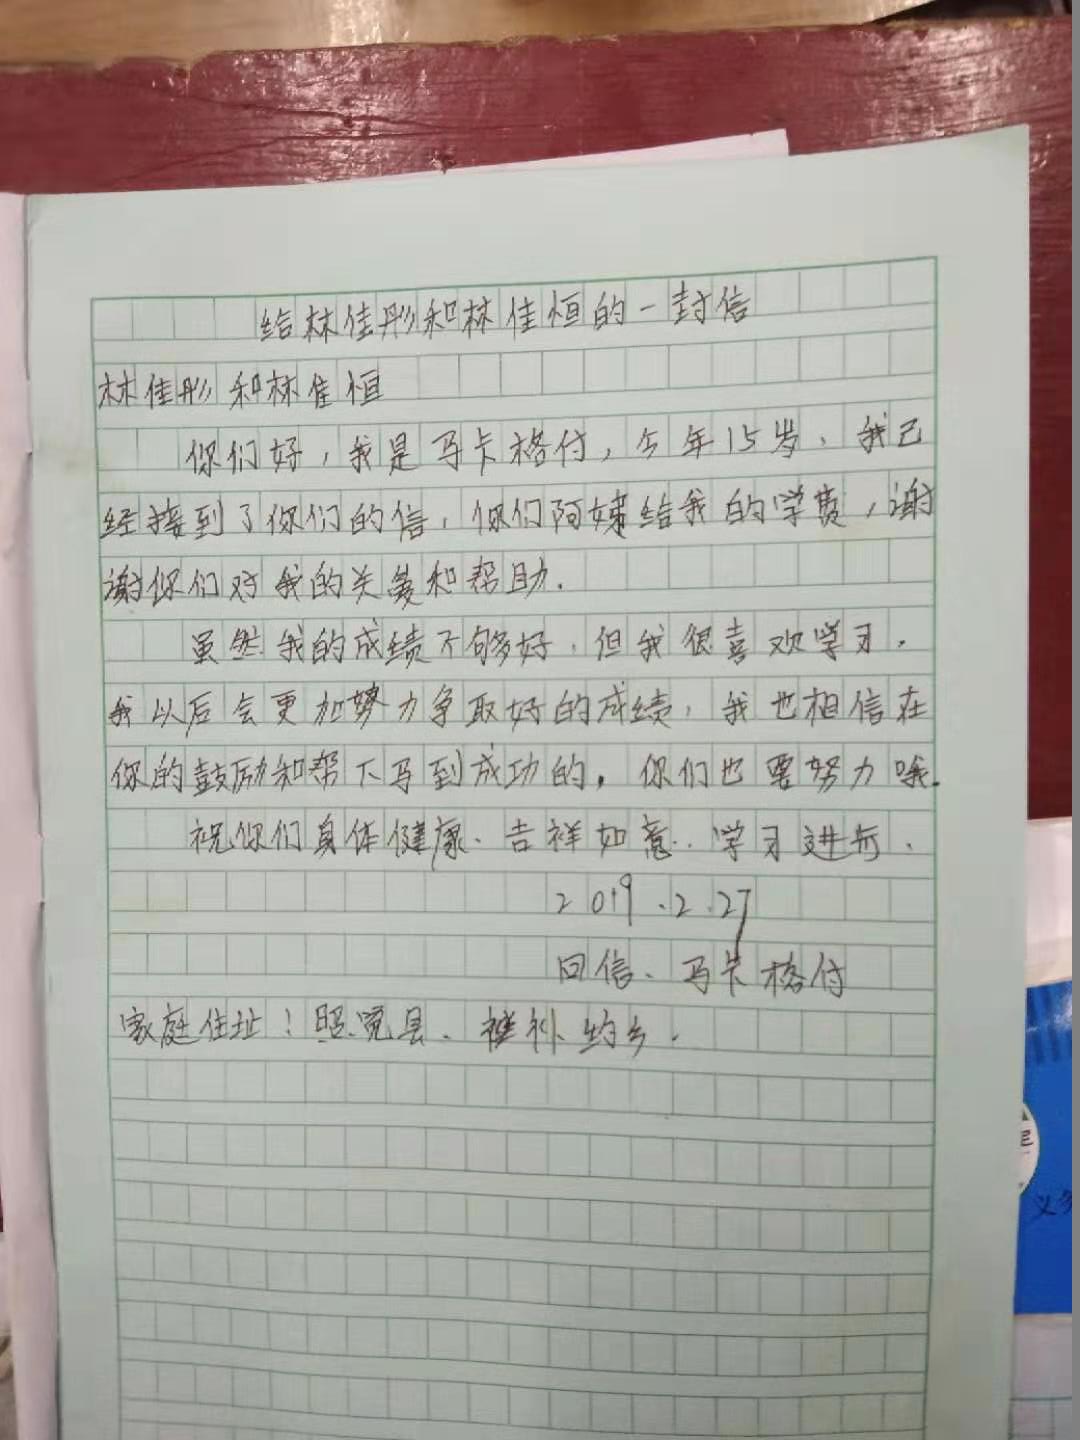 给林佳彤和林佳恒的一封信
林佳彤和林佳恒
你们好，我是马卡格付，今年15岁、我已
经接到了你们的信，你们阿姨给我的学费，谢
谢你们对我的关爱和帮助.
虽然我的成绩不够好，但我很喜欢学习.
我以后会更加努力争取好的成绩，我也相信在
你的鼓励和帮下马到成功的，你们也要努力哦.
祝你们身体健康、吉祥如意、学习进步.
2019.2.27
回信、马卡格付
家庭住址：县、补约乡.
义务